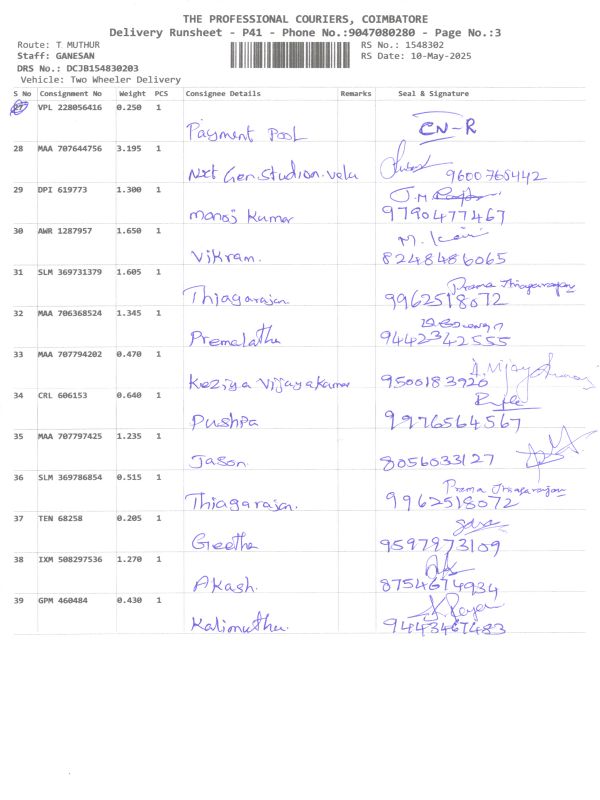 THE PROFESSIONAL COURIERS, COIMBATORE
Delivery Runsheet - P41 - Phone No.:9047080280 - Page No.:3
Route: T MUTHUR RS No.: 1548302
Staff: GANESAN RS Date: 10-May-2025
DRS No.: DCJB154830203
Vehicle: Two Wheeler Delivery
S No Consignment No Weight PCS Consignee Details Remarks Seal & Signature
27 VPL 228056416 0.250 1
Payment Pool CN-R
28 MAA 707644756 3.195 1
Nxt Gen Studion. velu 9600765442
29 DPI 619773 1.300 1
Manoj Kumar 9790477467
30 AWR 1287957 1.650 1
Vikram. 8248486065
31 SLM 369731379 1.605 1 Prema Thiagarajan
Thiagarajan 9962518072
32 MAA 706368524 1.345 1
Premalatha 9442342555
33 MAA 707794202 0.470 1
Keziya Vijayakumar 9500183920
34 CRL 606153 0.640 1
Pushpa 9976564567
35 MAA 707797425 1.235 1
Jason. 8056033127
36 SLM 369786854 0.515 1 Prema Thiagarajan
Thiagarajan. 9962518072
37 TEN 68258 0.205 1
Geetha 9597973109
38 IXM 508297536 1.270 1
Akash. 8754674934
39 GPM 460484 0.430 1
Kalimuthu. 9443467483